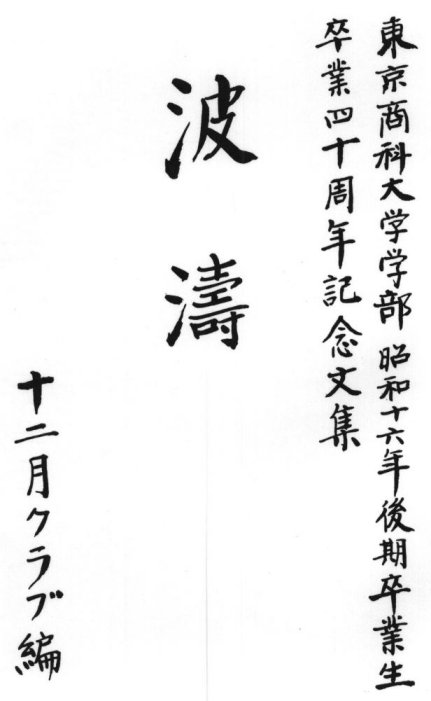 東京商科大学学部 昭和十六年後期卒業生
卒業四十周年記念文集
波濤
十二月クラブ編